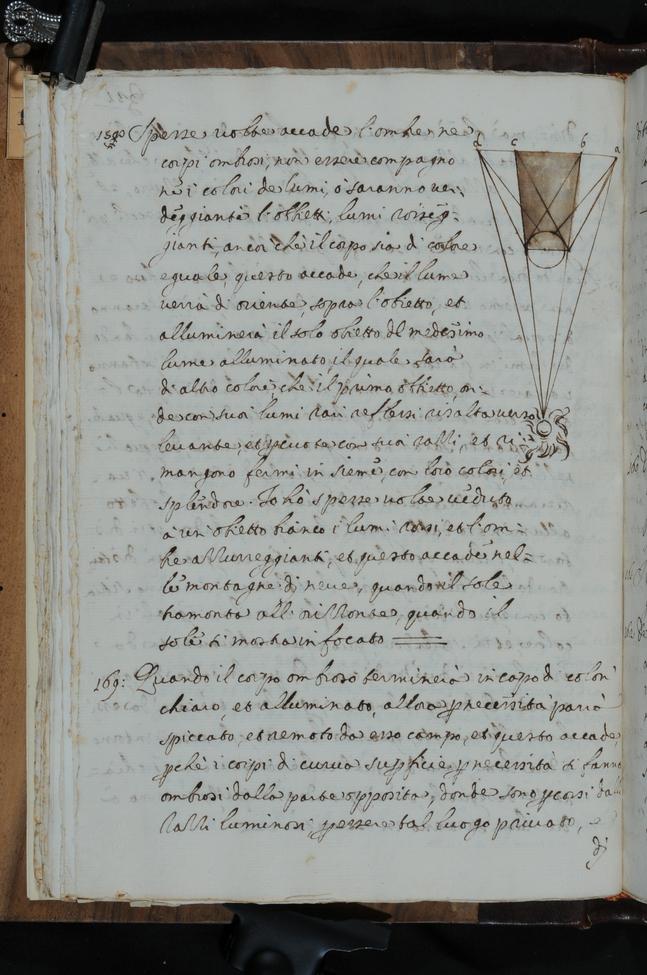 Spesse volte accade l'ombre ne
corpi ombrosi, non essere compagne
ne i colori de lumi, o saranno ver-
deggianti l'obbietti, lumi rosseg-
gianti, ancor che il corpo sia di colore
eguale, questo accade, che il lume
verrà di oriente, sopra l'obietto, et
alluminerà il solo obietto del medesimo
lume alluminato, il quale sarà
di altro colore, che il primo obbietto, on-
de con suoi lumi rari reflessi risalta verso
levante, et percote con sua razzi, et ri-
mangono fermi insieme, con loro colori, et
splendore. Io hò spesse volte veduto
à un obietto bianco i lumi rossi, et l'om-
bre azzurreggianti, et questo accade nel-
le montagne di neve, quando il sole
tramonta all'orizzonte, quando il
sole si mostra infocato
169: Quando il corpo ombroso terminerà in capo di color
chiaro, et alluminato, allora p necessità parrà
spiccato, et remoto da esso campo, et questo accade,
pchè i corpi di curva supficie p necessità si fanno
ombrosi dalla parte opposita, donde sono pcossi dalli
razzi luminosi, p essere tal luogo privato,
di
d c b a